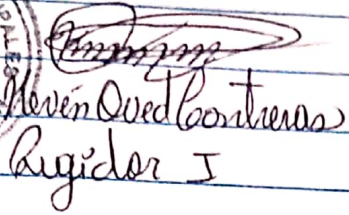 PALES
Nevin Oved Contreras
Regidor I